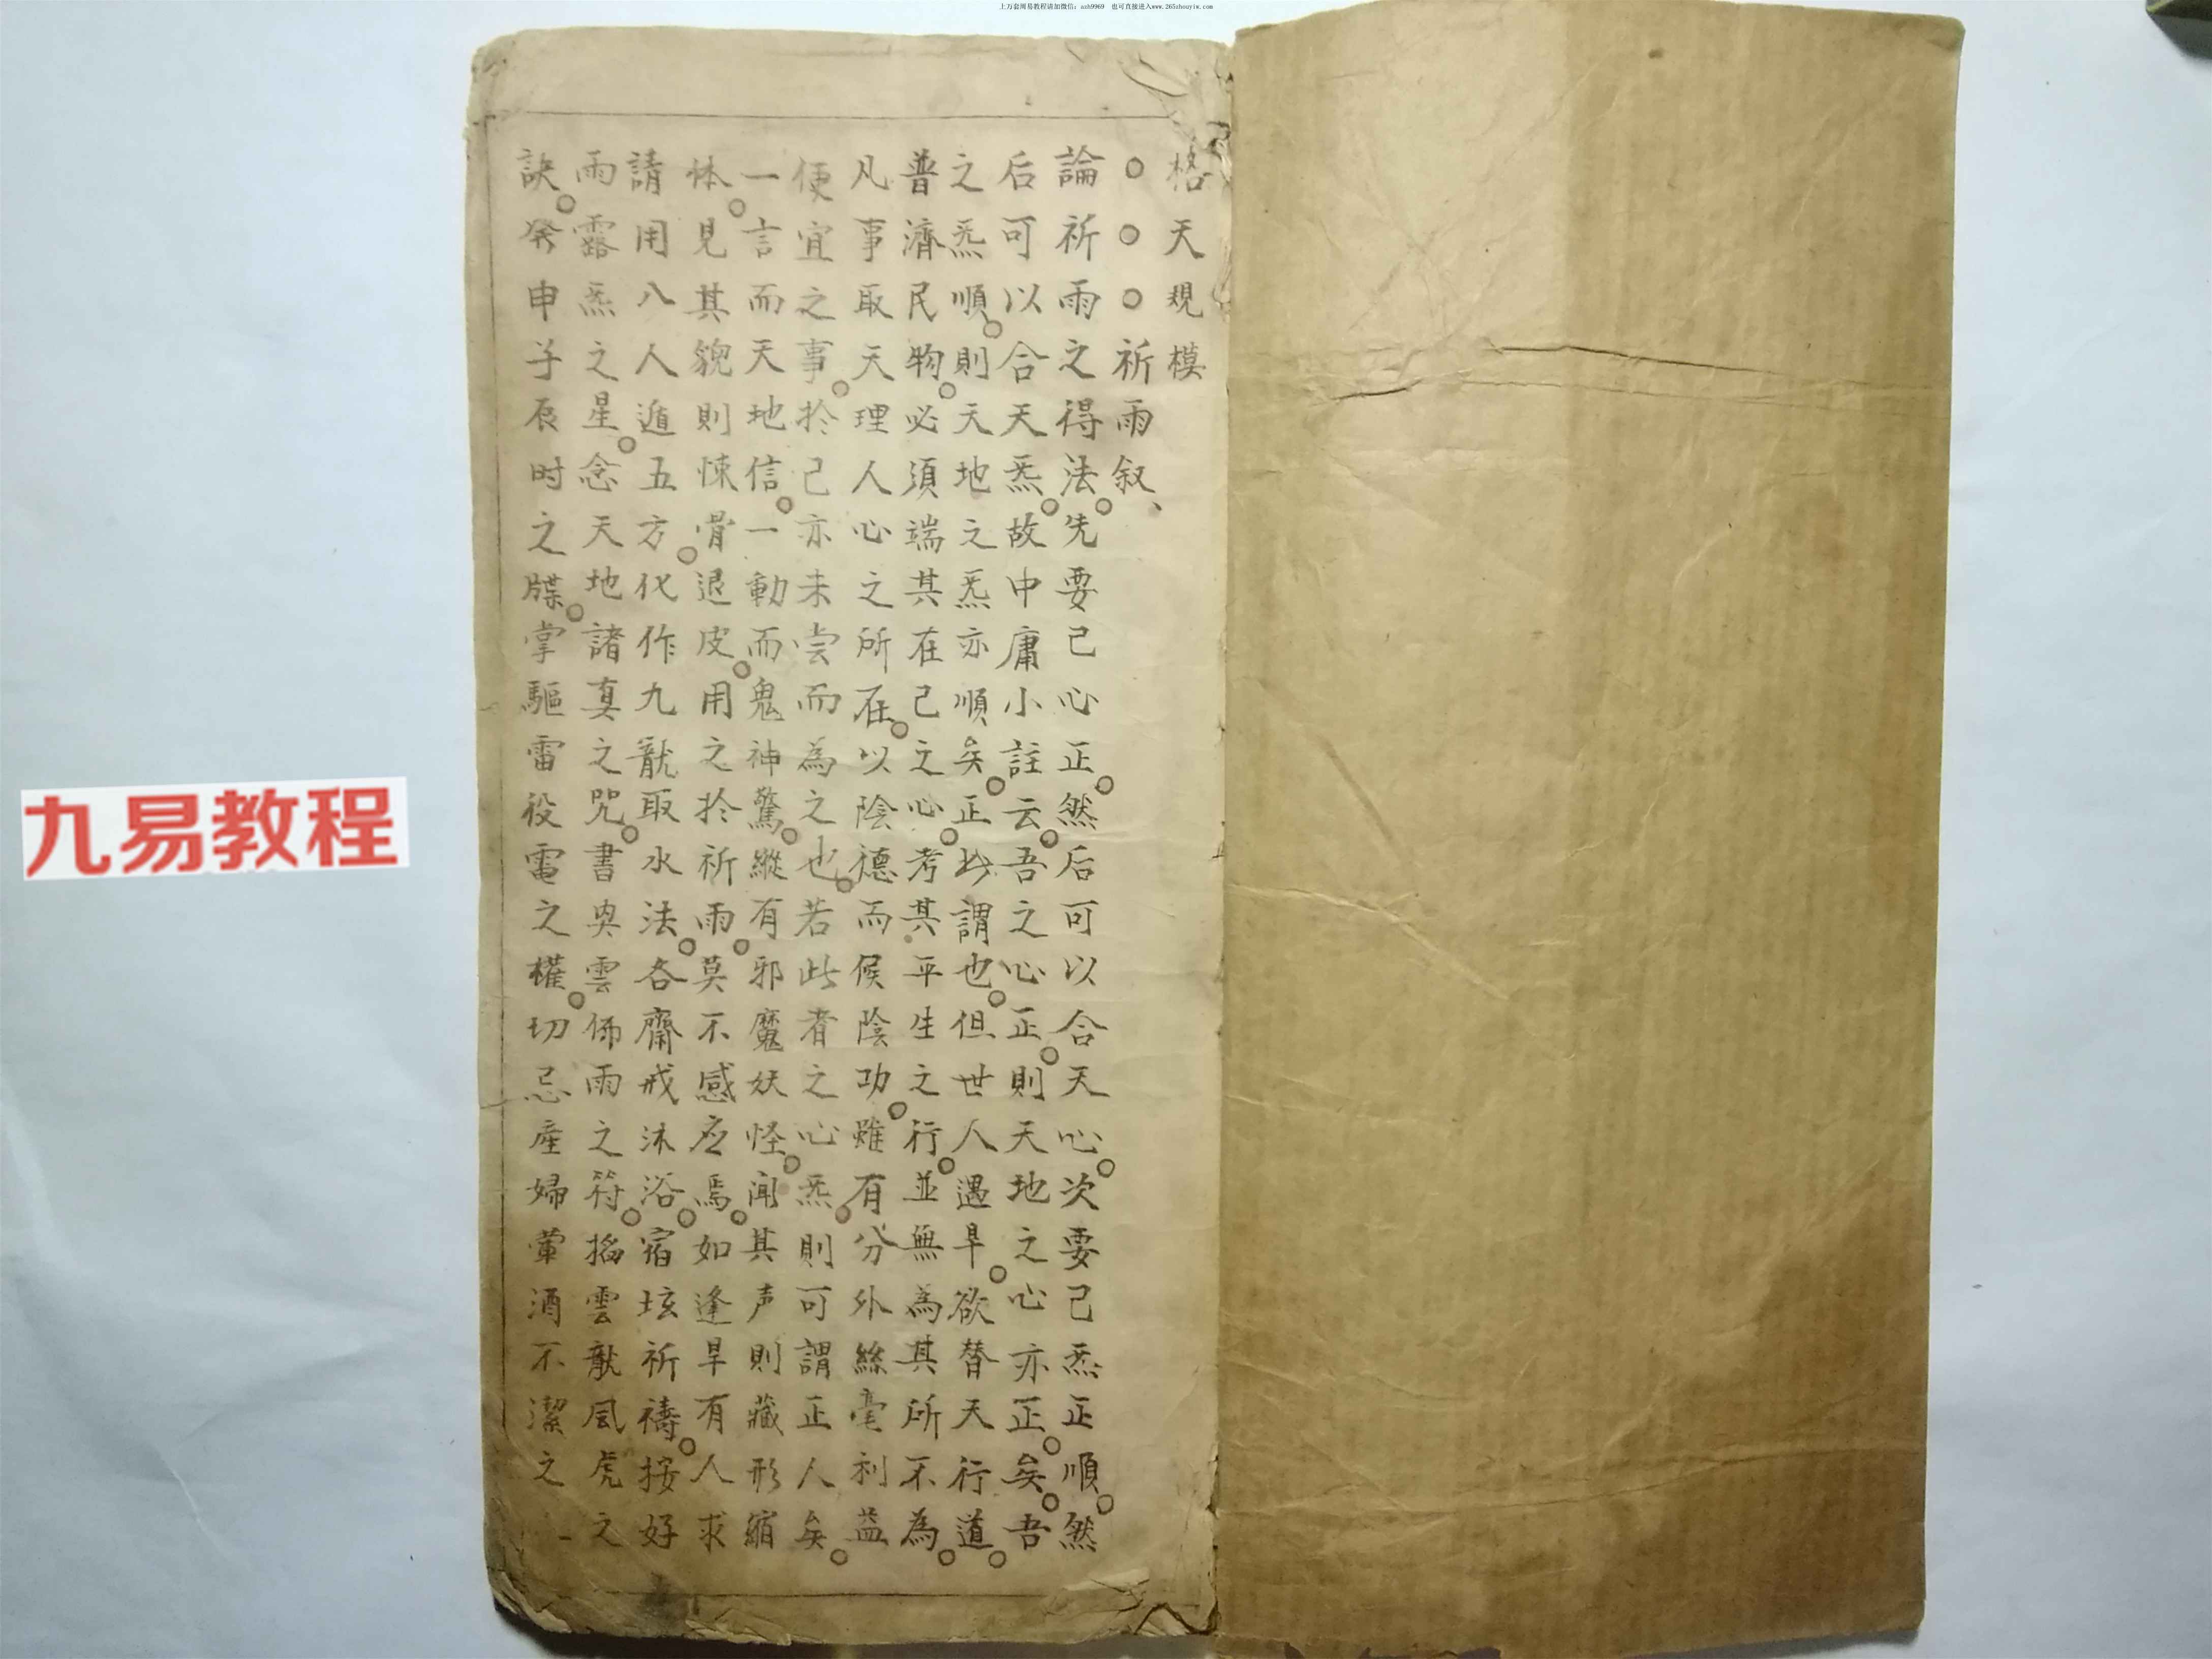 上万套周易教程请加微信：azh9969 也可直接进入www.265zhouyiw.com
格天規模
○○○祈雨叙、
論祈雨之得法○先要己心正○然后可以合天心○次要己炁正順○然
后可以合天炁○故中庸小註云○吾之心正○則天地之心亦正○矣○吾
之炁順○則天地之炁亦順矣○正此謂也○但世人遇旱○欲替天行道○
普濟民物○必須端其在己之心○考其平生之行○並無為其所不為○
凡事取天理人心之所在○以陰德而候陰功○雖有○分外絲毫利益
便宜之事○於己亦未尝而為之也○若此者之心炁則可謂正人矣○
一言而天地信○一動而鬼神驚○縱有邪魔妖怪○闻其声則藏形縮
体○見其貌則悚骨退皮○用之於祈雨○莫不感应焉○如逢旱有人求
請用八人遁五方○化作九龍取水法○各齋戒沐浴○宿坛祈禱○按好
雨露炁之星○念天地諸真之咒○書興雲佈雨之符○搖雲龍風虎之
訣○癸申子辰时之牒○掌驅雷役電之權○切忌產婦葷酒不潔之一
九易教程